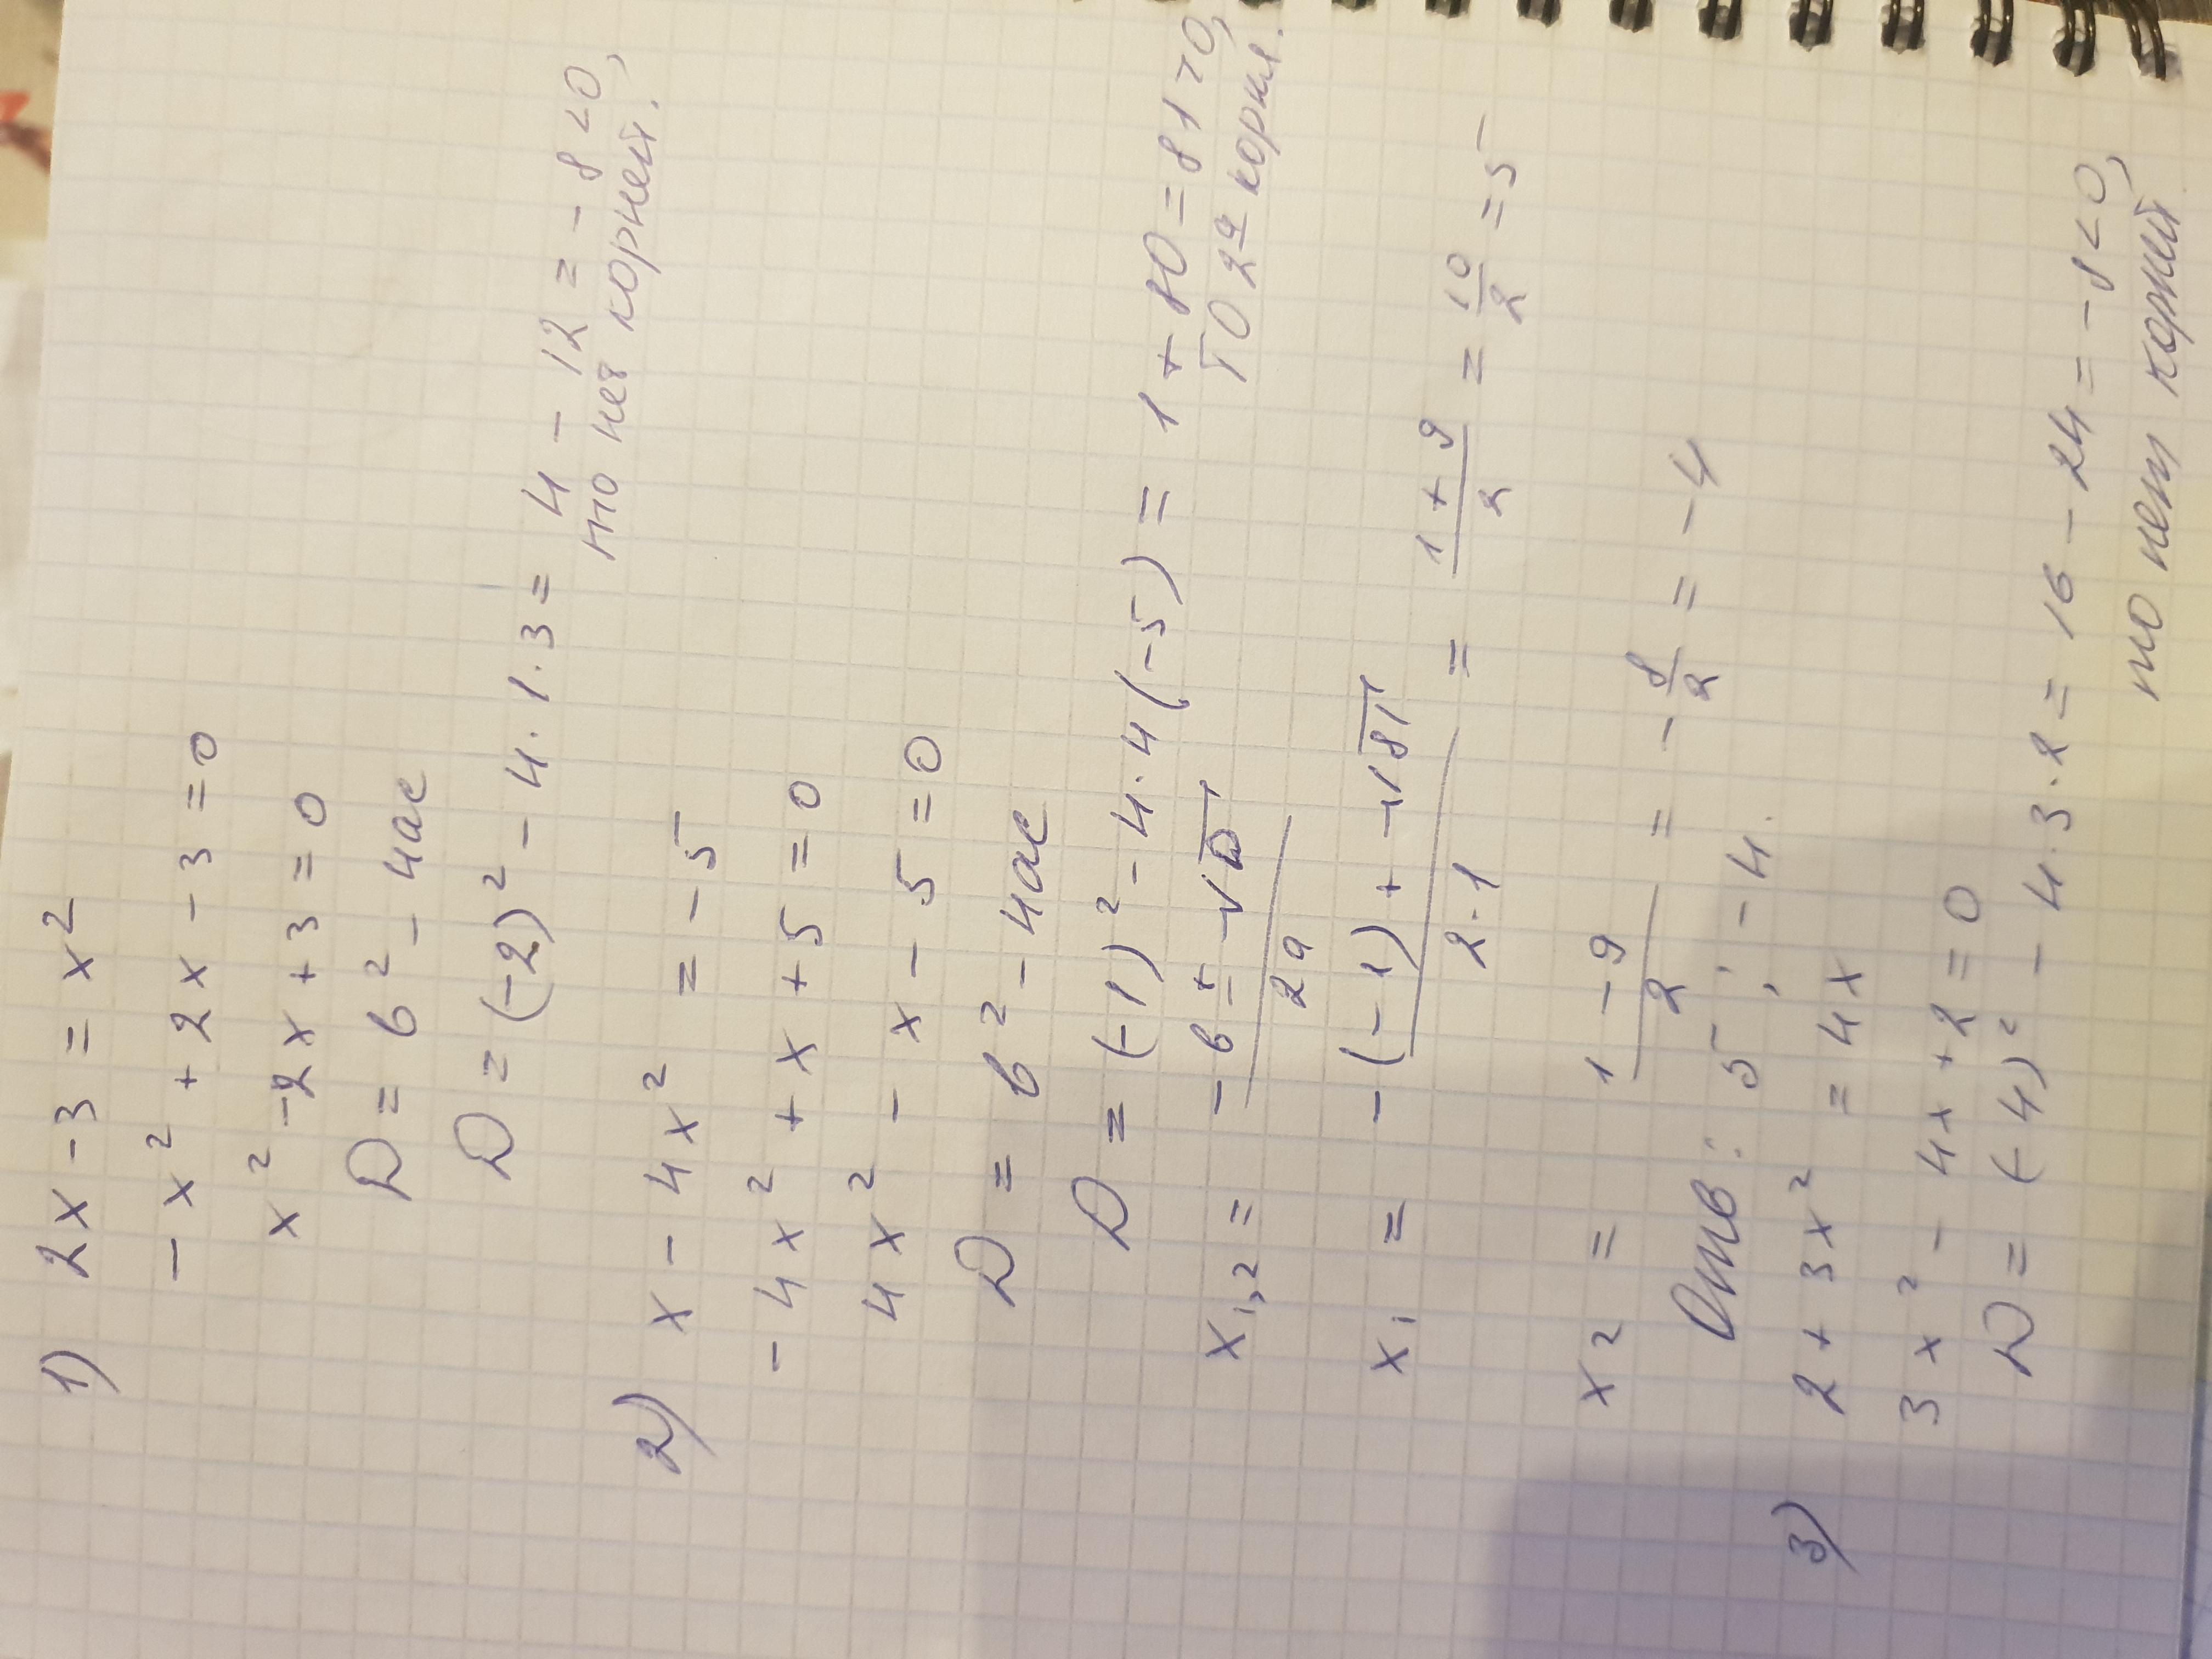 1) 2x - 3 = x²
- x² + 2x - 3 = 0
x² - 2x + 3 = 0
D = b² - 4ac
D = (-2)² - 4 · 1 · 3 = 4 - 12 = - 8 < 0,
то нет корней.
2) x - 4x² = - 5
- 4x² + x + 5 = 0
4x² - x - 5 = 0
D = b² - 4ac
D = (-1)² - 4 · 4 (-5) = 1 + 80 = 81 > 0,
то 2а корня.
x1,2 = (-b ± √D) / 2a
x1 = (-(-1) + √81) / (2 · 1) = (1 + 9) / 2 = 10/2 = 5
x2 = (1 - 9) / 2 = - 8/2 = - 4
Отв: 5 ; - 4.
3) 2 + 3x² = 4x
3x² - 4x + 2 = 0
D = (-4)² - 4 · 3 · 2 = 16 - 24 = - 8 < 0,
то нет корней